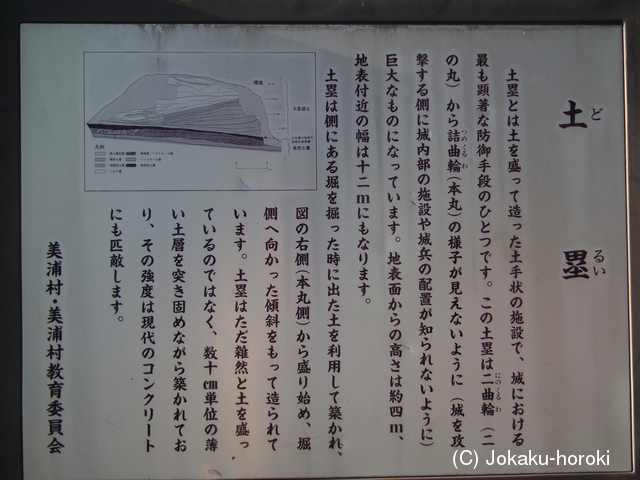 土塁
どるい
土塁とは土を盛って造った土手状の施設で、城における
最も顕著な防御手段のひとつです。この土塁は二曲輪（二
にのくるわ
の丸）から詰曲輪（本丸）の様子が見えないように（城を攻
つめくるわ
撃する側に城内部の施設や城兵の配置が知られないように）
巨大なものになっています。地表面からの高さは約四m、
地表付近の幅は十二mにもなります。
土塁は側にある堀を掘った時に出た土を利用して築かれ、
図の右側（本丸側）から盛り始め、堀
側へ向かった傾斜をもって造られて
います。土塁はただ雑然と土を盛っ
ているのではなく、数十㎝単位の薄
い土層を突き固めながら築かれてお
り、その強度は現代のコンクリート
にも匹敵します。
美浦村・美浦村教育委員会
(C) Jokaku-horoki